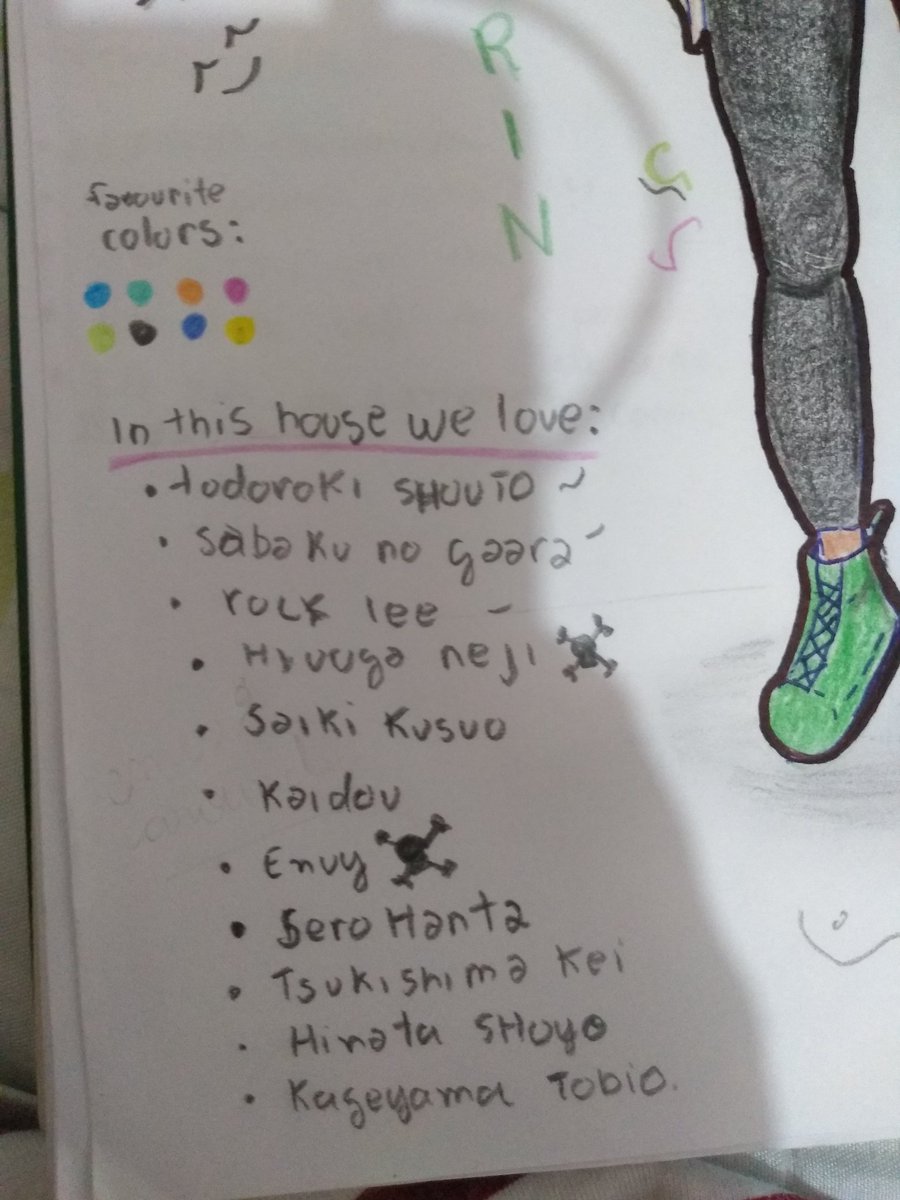 R
I
N
favourite
colors:
In this house we love:
• todoroki SHOUTO ~
• sabaku no gaara
• rock lee -
• Hyuuga neji
• Saiki Kusuo
• Kaidou
• Envy
• Sero Hanta
• Tsukishima Kei
• Hinata SHoyo
• Kageyama Tobio.